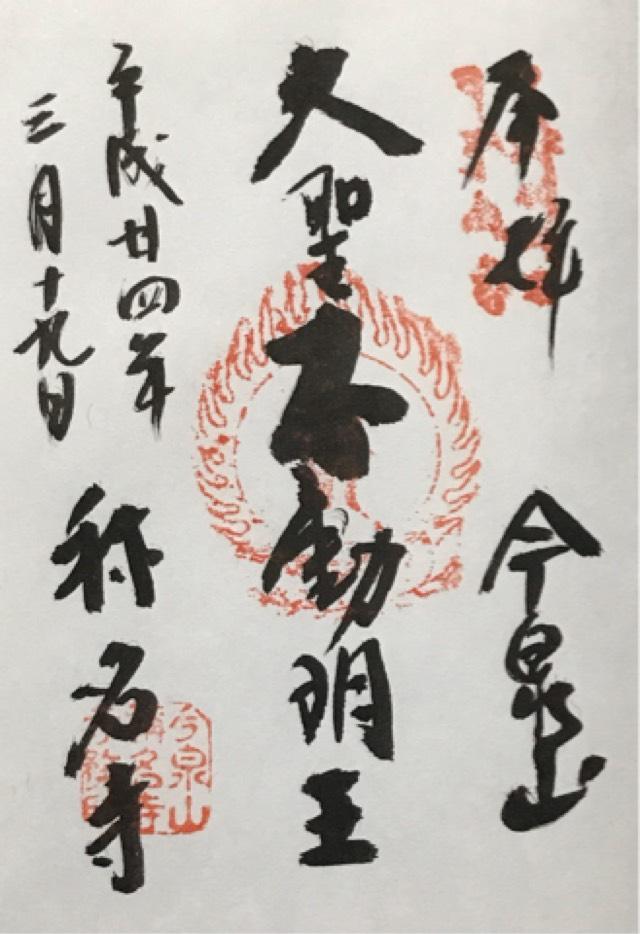 奉拝
今泉山
大聖不動明王
平成廿四年
三月十九日
称名寺
今泉山
稱名寺